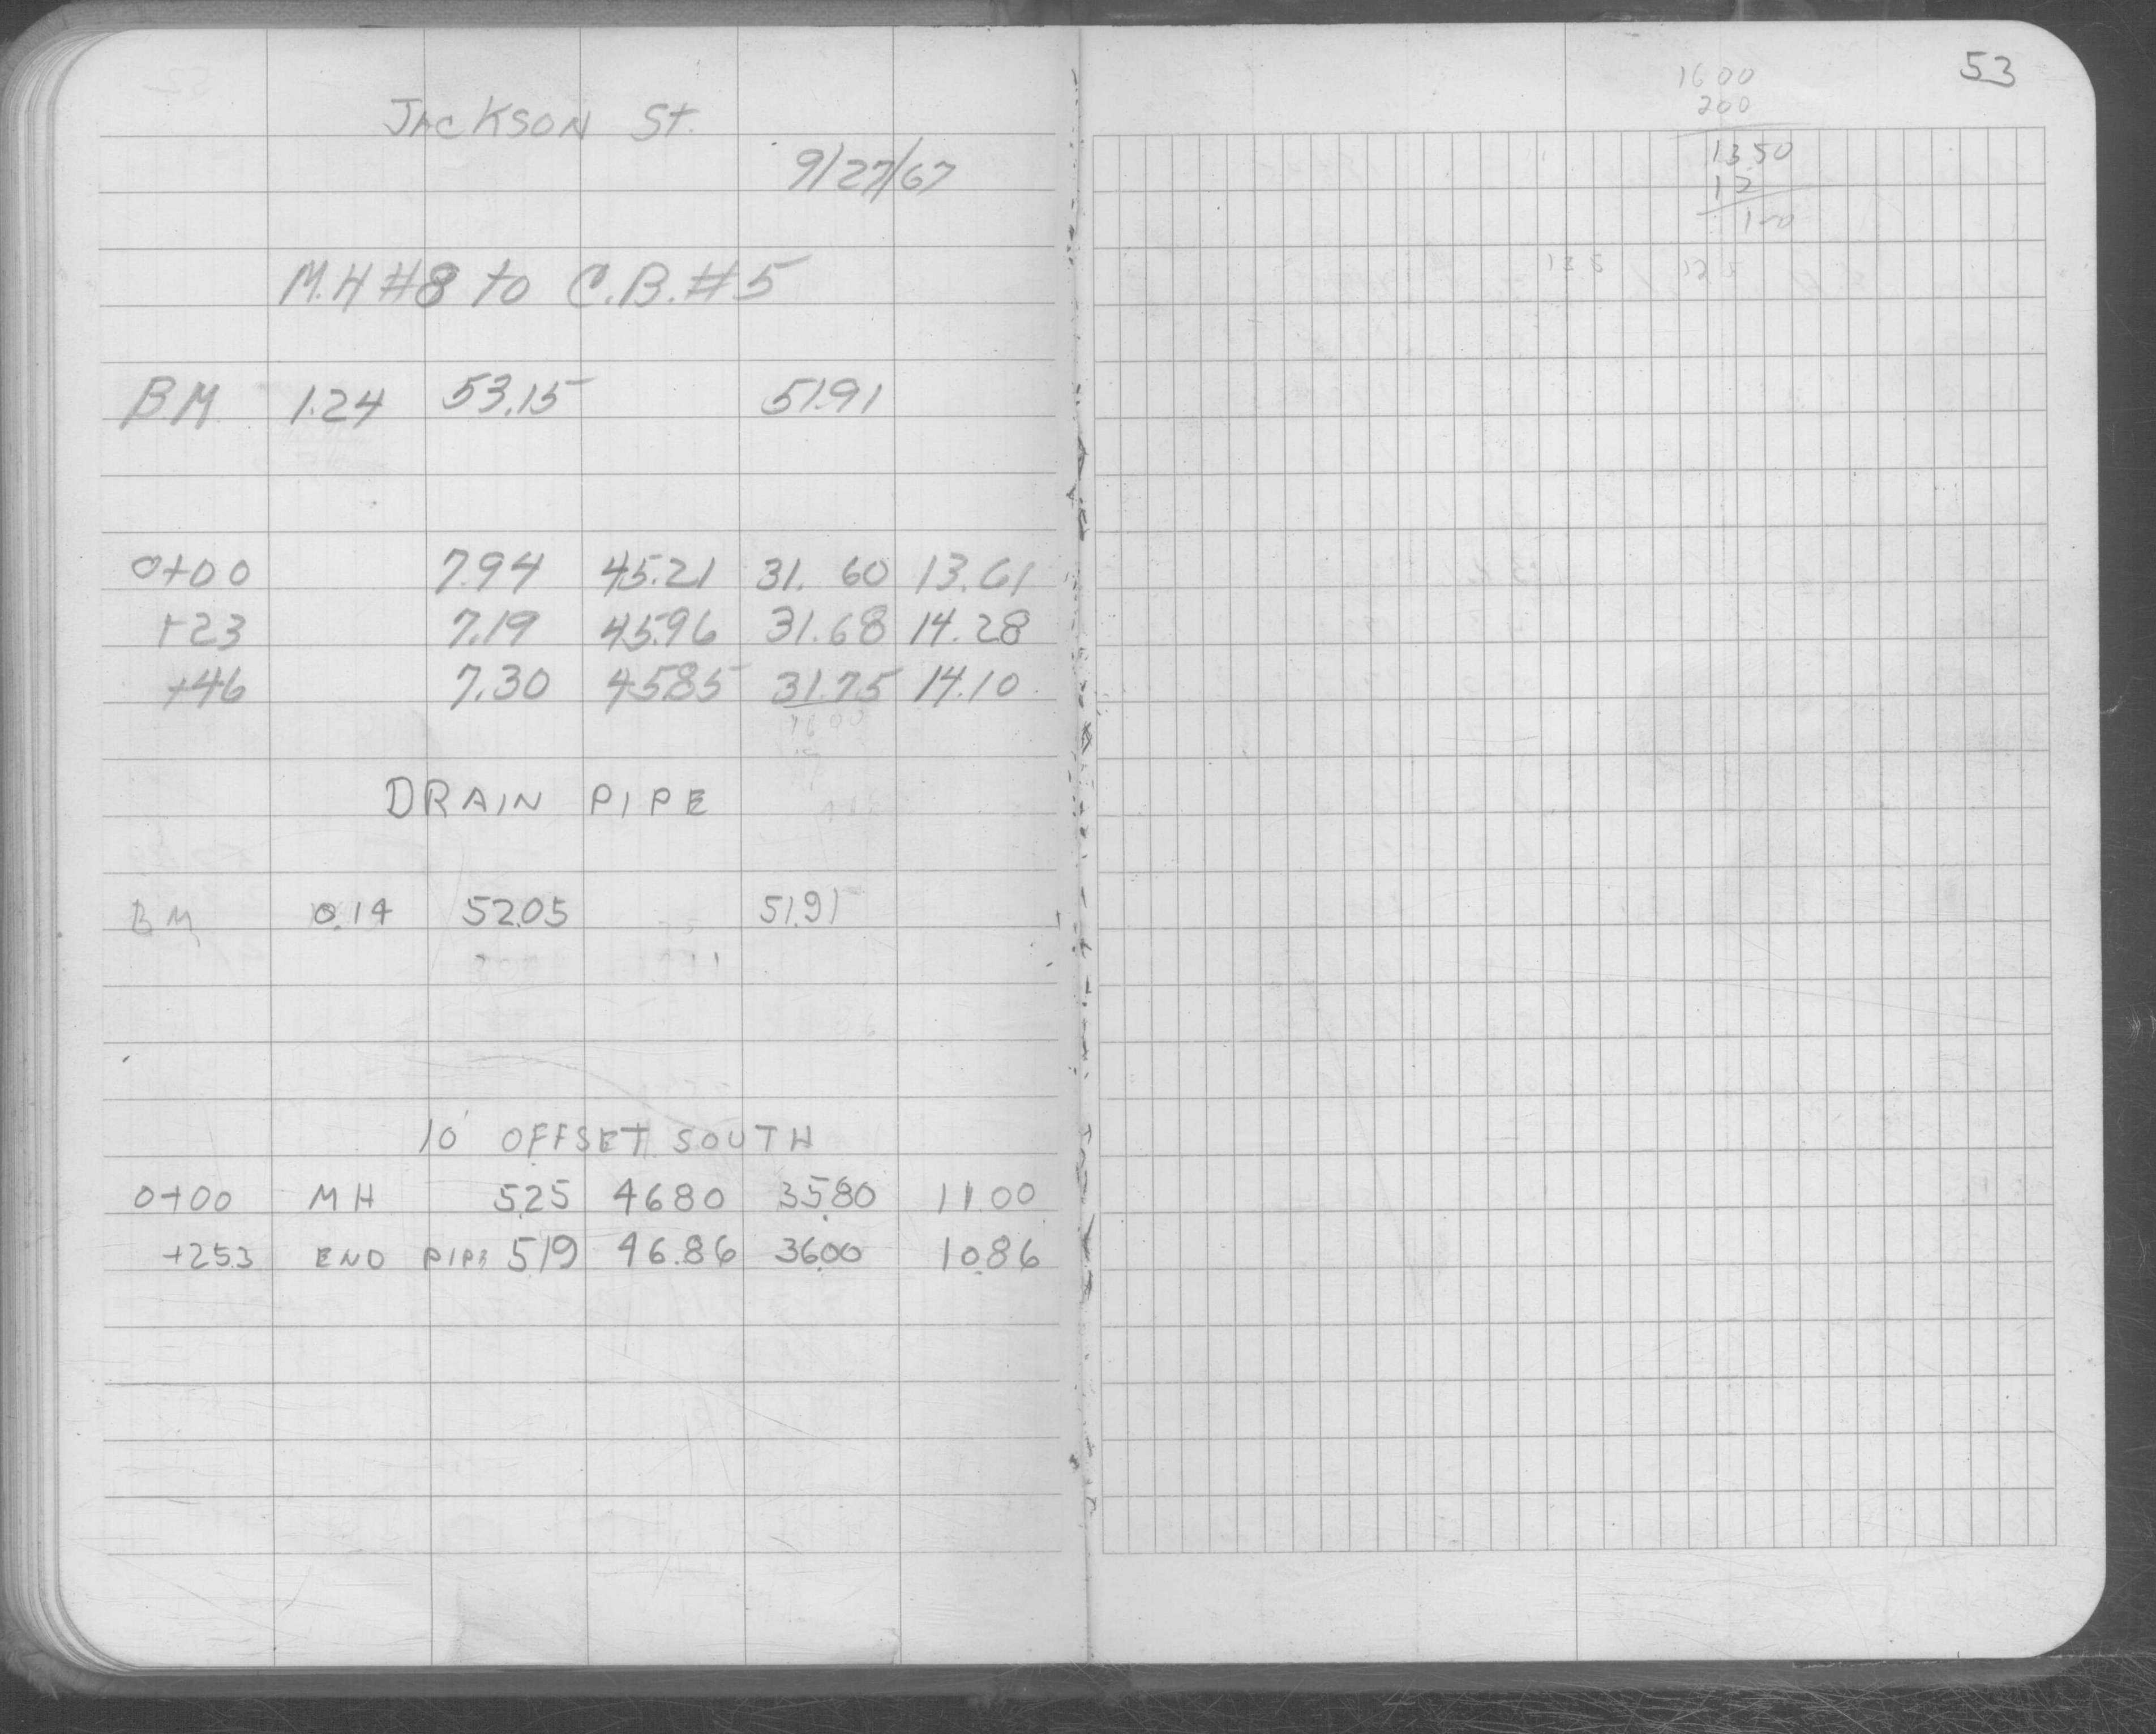 JACKSON St.
9/27/67
M.H #8 to C.B. #5
BM 1.24 53.15 51.91
0+00 7.94 45.21 31.60 13.61
+23 7.19 45.96 31.68 14.28
+46 7.30 45.85 31.75 14.10
1600
DRAIN PIPE
BM 0.14 52.05 51.91
10' OFFSET SOUTH
0+00 MH 5.25 46.80 35.80 11.00
+253 END PIPE 5.19 46.86 36.00 10.86
53
1600
200
1350
12
150
135 125